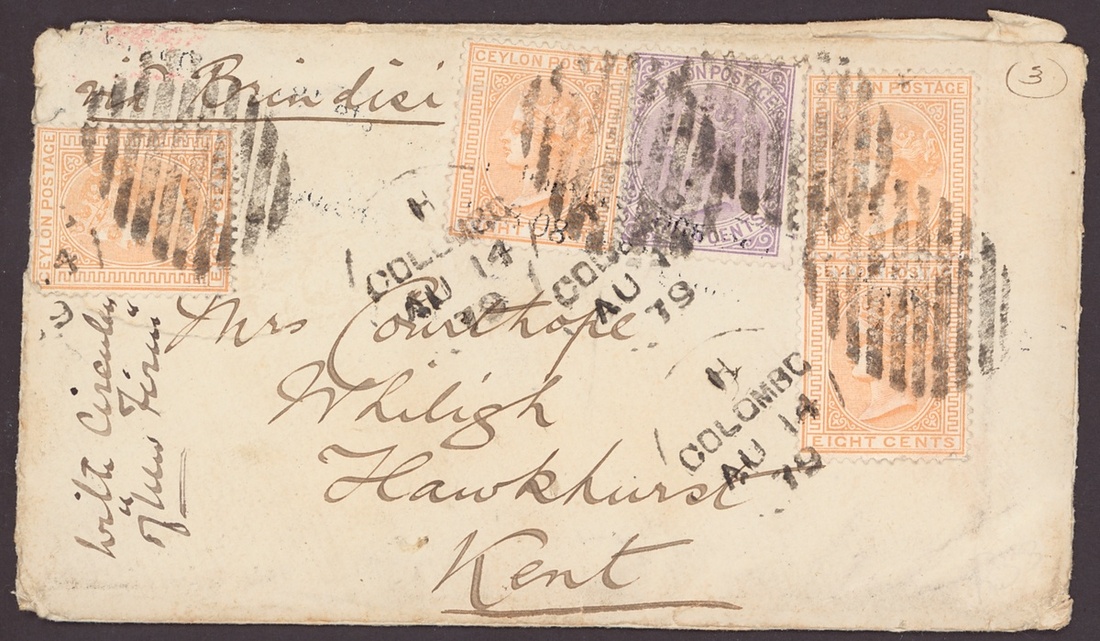 via Brindisi
3
CEYLON POSTAGE
CEYLON POSTAGE
CEYLON POSTAGE
CENTS
CEYLON POSTAGE
CEYLON POST
EIGHT CENTS
H
COLOMBO
AU 14
79
COLOMBO
AU
79
H
COLOMBO
AU 14
79
Mrs Courthope
Whiligh
Hawkhurst
Kent
With Circular
of New Firm